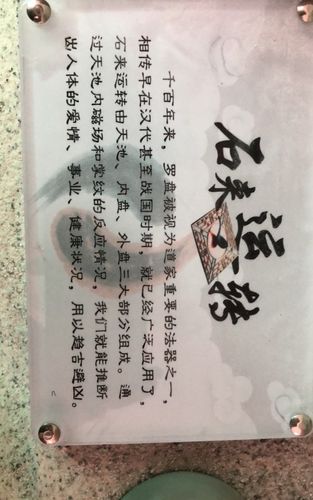 石来运转
千百年来，罗盘被视为道家重要的法器之一，
相传早在汉代甚至战国时期，就已经广泛应用了，
石来运转由天池、内盘、外盘三大部分组成。通
过天池内磁场和掌纹的反应情况，我们就能推断
出人体的爱情、事业、健康状况，用以趋吉避凶。